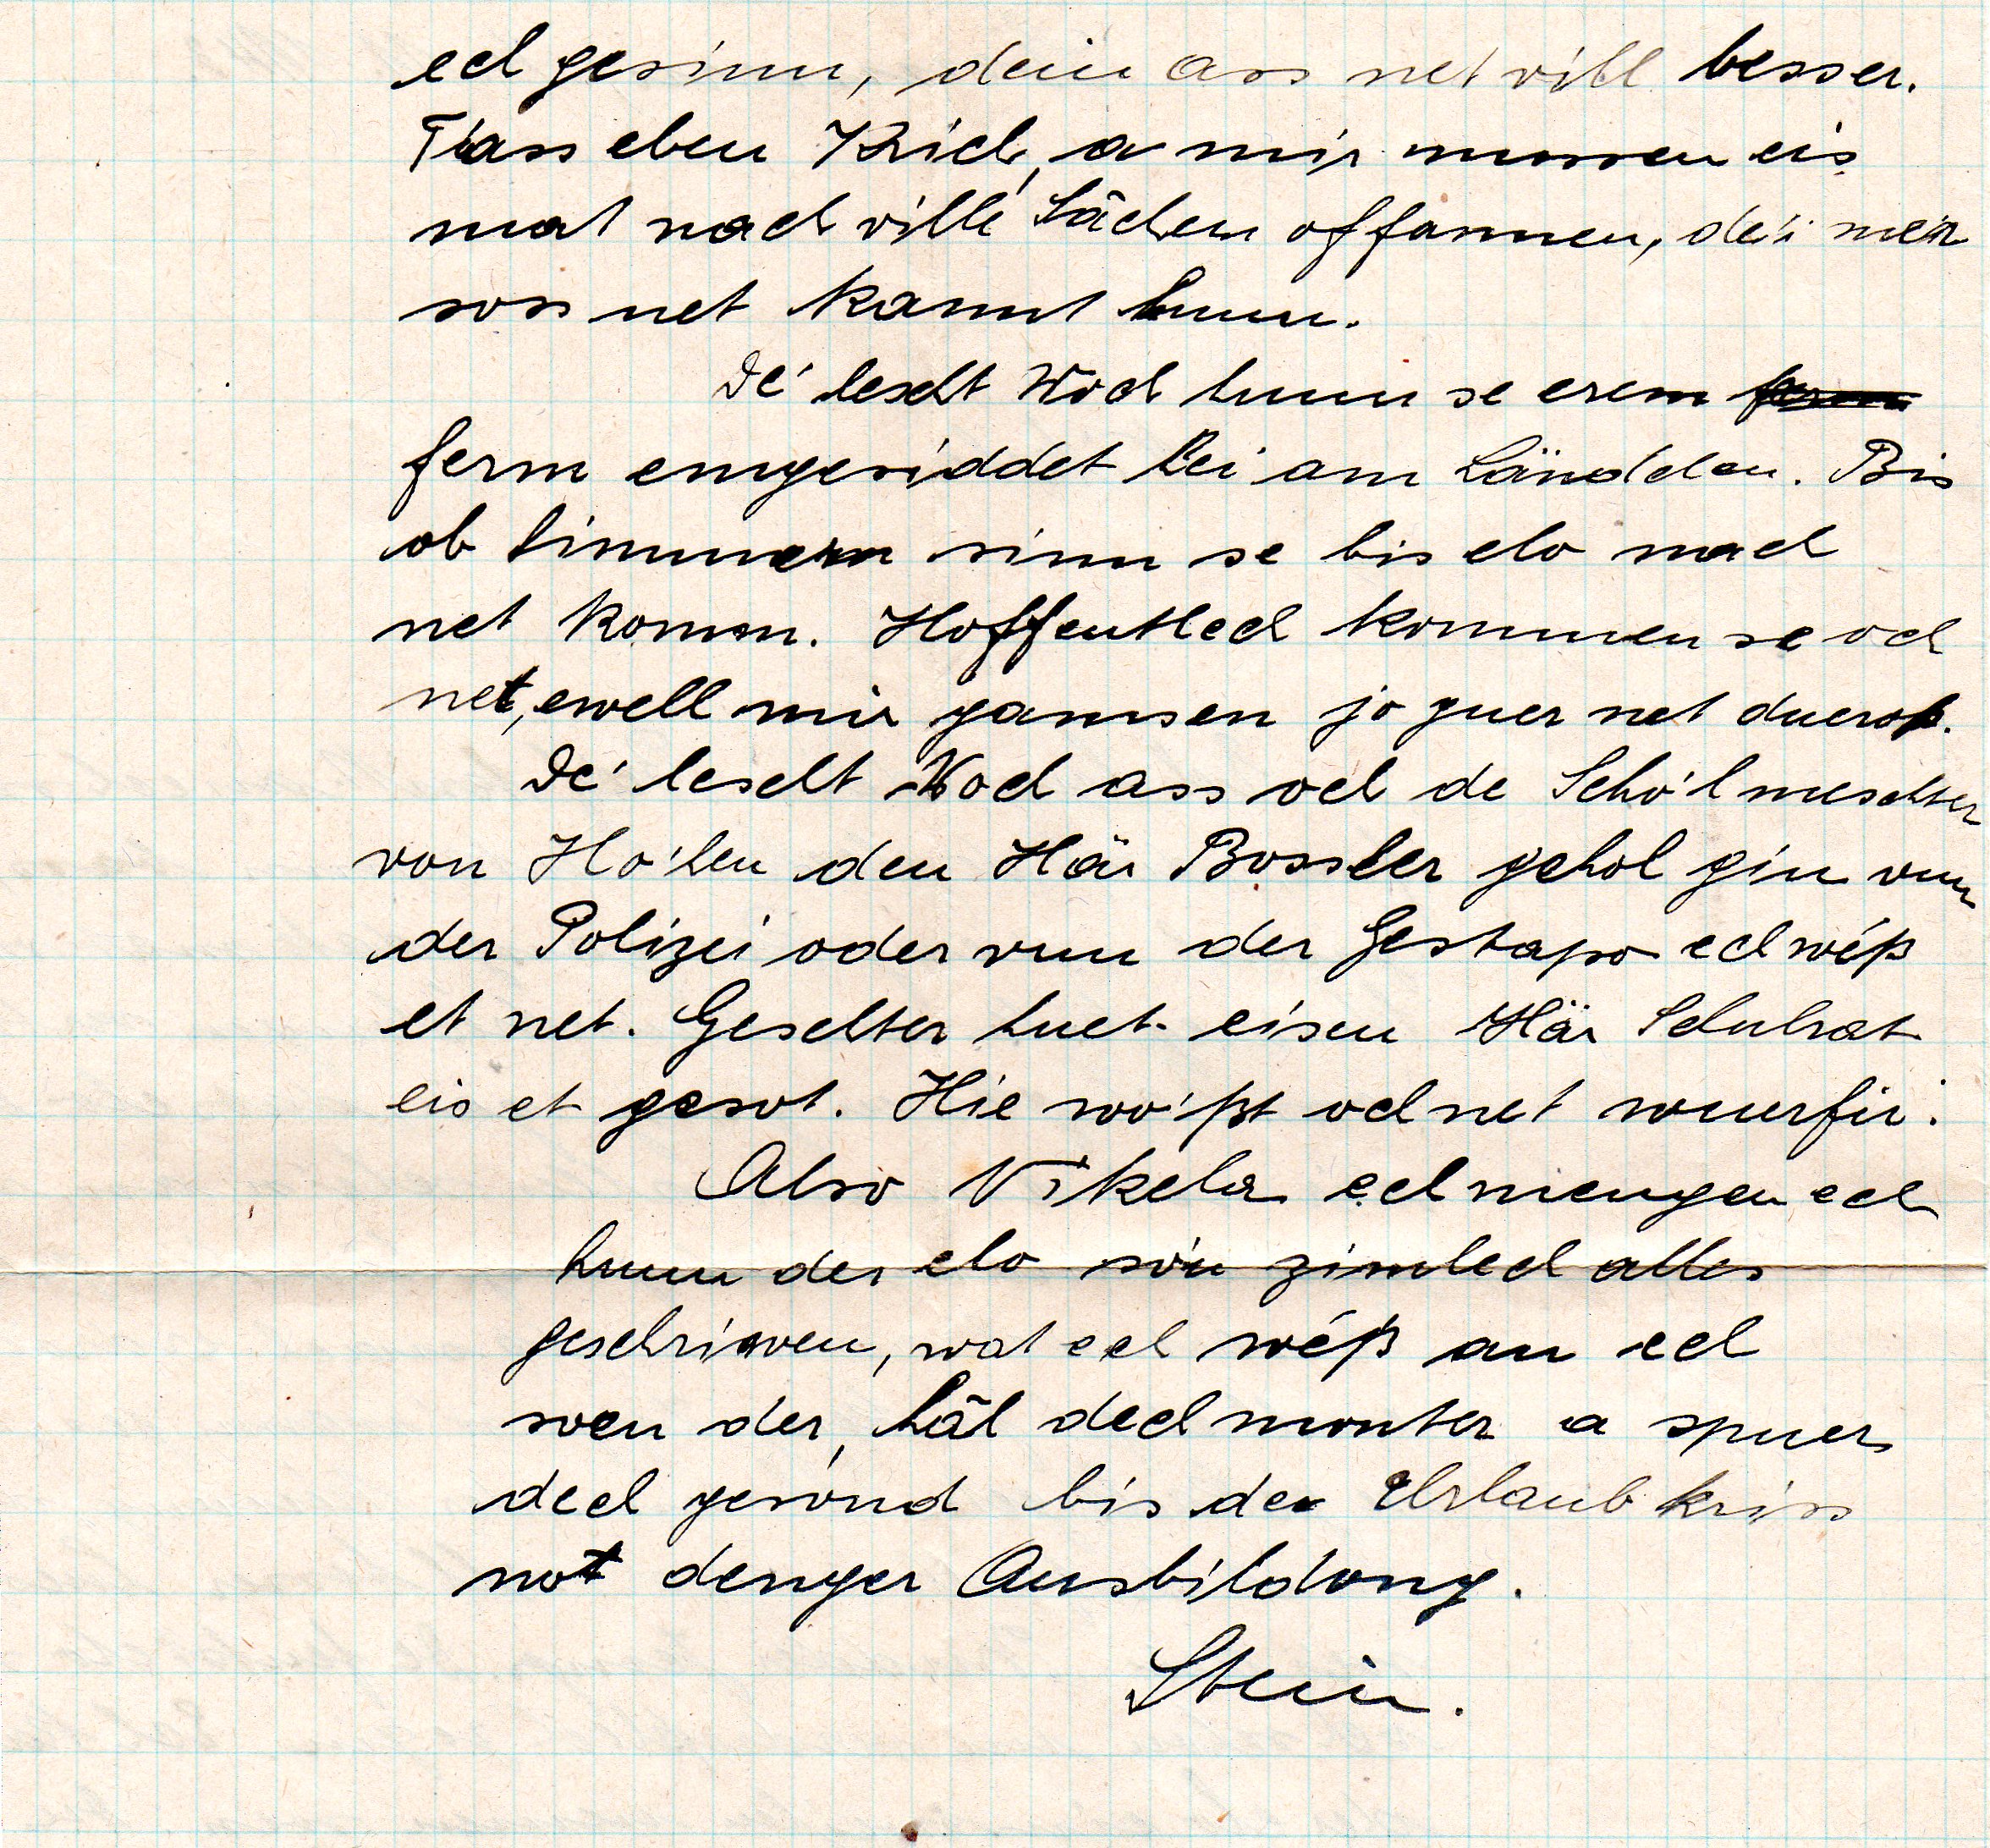 ech gesinn, dein ass net vill besser.
T'ass eben Krich, a mir mussen eis
mat nach ville Sâchen offannen, déi mer
soss net kannt hunn.
Dé lescht Woch hunn se erem
ferm emgesiddet hei am Ländchen. Bis
ob Simmern sinn se bis elo nach
net komm. Hoffentlech kommen se och
net, ewell mir gamsen jo guer net duerop.
Dé lescht Woch ass och de Schó'lmeschter
von Ho'len den Här Bossler gehol gin vun
der Polizei oder vun der Gestapo ech wéß
et net. Geschter huet eisen Här Schulrat
eis et gesot. Hie wo'ßt och net wuerfir.
Also Nikela ech mengen ech
hunn der elo so'u zimlech alles
geschriwen, wat ech wéß an ech
soen der, hâl dech monter a spuer
dech gesond bis de Urlaub kriss
not denger Ausbildong.
Stein.